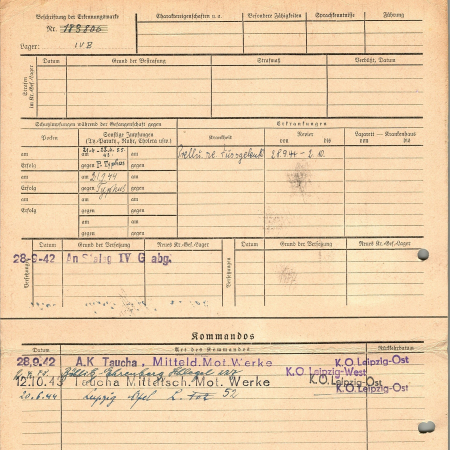 Beschriftung der Erkennungsmarke
Nr. 183806
Lager: IV B
Charaktereigenschaften u. a.
Besondere Fähigkeiten
Sprachkenntnisse
Führung
Strafen im Kr.-Gef.-Lager
Datum
Grund der Bestrafung
Strafmaß
Verbüßt, Datum
Schutzimpfungen während der Gefangenschaft gegen
Erkrankungen
Pocken
Sonstige Impfungen
(Ty.-Paratyf., Ruhr, Cholera usw.)
Krankheit
Revier
von bis
Lazarett — Krankenhaus
von bis
am
am
am
Erfolg
gegen
gegen
am
am 21.9.44
am
Erfolg
gegen Typhus
gegen
am
am
am
Erfolg
gegen
gegen
am
am
gegen
gegen
Versetzungen
Datum
Grund der Versetzung
Neues Kr.-Gef.-Lager
Datum
Grund der Versetzung
Neues Kr.-Gef.-Lager
28-9-42 An Stalag IV G abg.
Kommandos
Datum
Art des Kommandos
Rückkehrdatum
28.9.42 A.K Taucha. Mitteld. Mot. Werke K.O. Leipzig-Ost
K.O. Leipzig-West
12.10.43 Taucha Mitteldtsch. Mot. Werke K.O. Leipzig-Ost
K.O. Leipzig-Ost
20.6.44 Leipzig 52